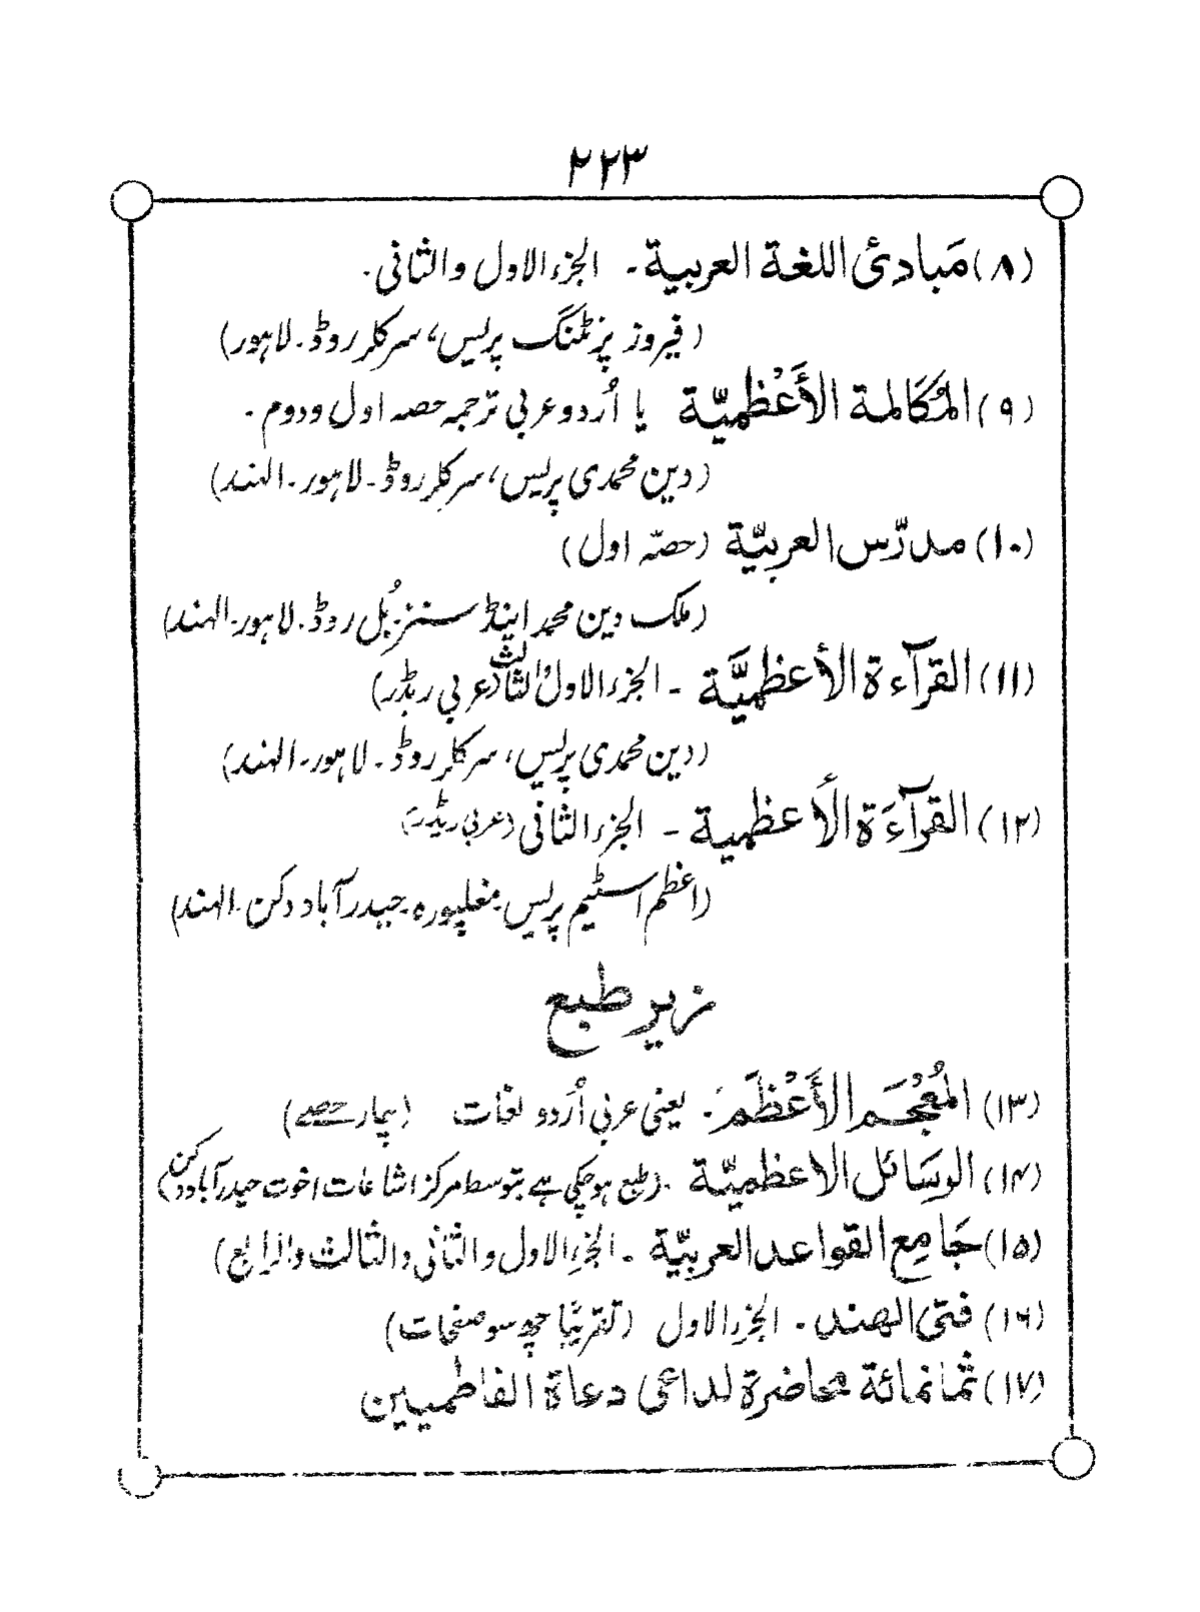 ۲۲۳
(۸) مَبادئ اللغة العربية ـ الجزء الاول والثانی ـ
(فیروز پرنٹنگ پریس، سرکلر روڈ۔ لاہور)
(۹) المُكَالمة الأَعْظميّة یا اُردو عربی ترجمہ حصہ اول و دوم ۔
(دین محمدی پریس، سرکلر روڈ۔ لاہور۔ الہند)
(۱۰) مدرّس العربيّة (حصّہ اول)
(ملک دین محمد اینڈ سنز۔ بُل روڈ۔ لاہور۔ الہند)
(۱۱) القرآءة الأعظميَّة ـ الجزء الاول والثالث (عربی ریڈر)
(دین محمدی پریس، سرکلر روڈ۔ لاہور۔ الہند)
(۱۲) القرآءَة الأعظمية ـ الجزء الثانی (عربی ریڈر)
(اعظم اسٹیم پریس مغلپورہ۔ حیدرآباد دکن۔ الہند)
زیر طبع
(۱۳) المُعْجَم الأَعْظَم ۔ یعنی عربی اُردو لغات (چار حصے)
(۱۴) الوسَائل الاعظميّة ۔ (طبع ہوچکی ہے بتوسط مرکز اشاعات اخوت حیدرآباد دکن)
(۱۵) جَامِع القواعد العربيّة ـ الجزء الاول والثانی والثالث والرابع)
(۱۶) فتى الهند ۔ الجزء الاول (تقریبًا چھ سو صفحات)
(۱۷) ثمانمائة محاضرة لداعی دعاة الفاطميين